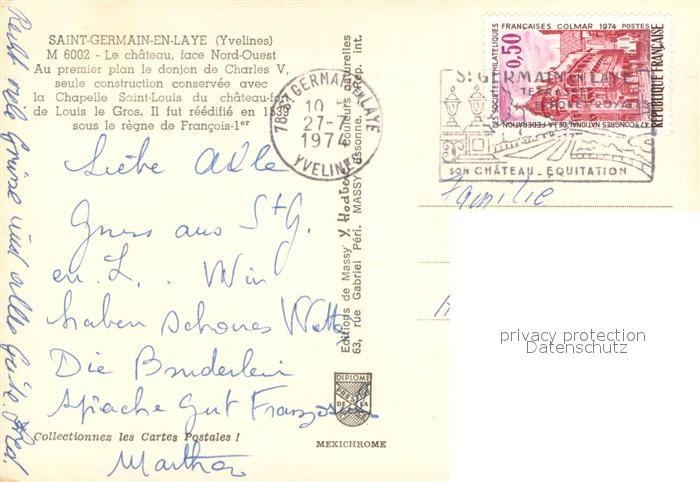 SAINT-GERMAIN-EN-LAYE (Yvelines)
M 6002 - Le château, face Nord-Ouest
Au premier plan le donjon de Charles V,
seule construction conservée avec
la Chapelle Saint-Louis du château-fort
de Louis le Gros. Il fut réédifié en 1539
sous le règne de François-1er
Liebe Alle
Gruss aus St G.
en. L. Wir
haben schönes
Die
spreche gut
Martha
Recht viele Grüsse und alles Gute. Fred
Collectionnez les Cartes Postales !
MEXICHROME
DIPLOME
PRESTIGE
DE LA
Editions de Massy
63, rue Gabriel Péri. MASSY Essonne.
couleurs naturelles
Rep. int.
78 ST GERMAIN EN LAYE
10
27-7
1974
YVELINES
SOCIÉTÉS PHILATÉLIQUES FRANÇAISES COLMAR 1974 POSTES
0,50
RÉPUBLIQUE FRANÇAISE
47e CONGRÈS NATIONAL DE LA FÉDÉRATION
ST GERMAIN EN LAYE
FORET ROYALES
SON CHÂTEAU _ EQUITATION
Familie
privacy protection
Datenschutz